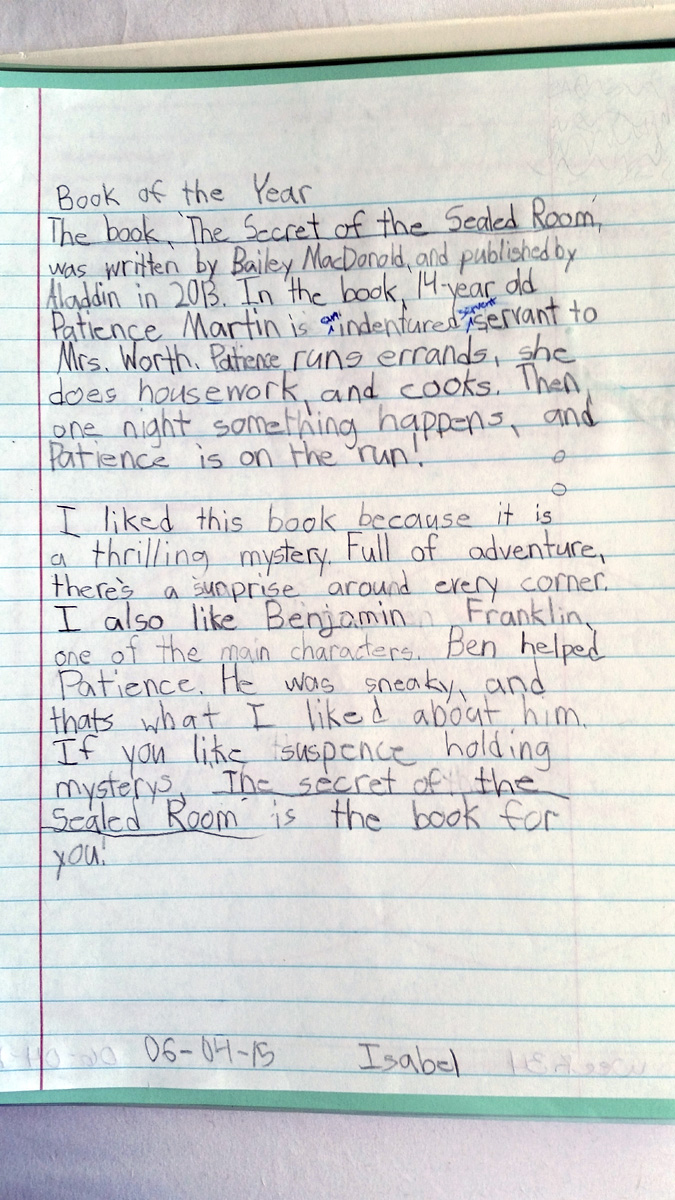 Book of the Year
The book, The Secret of the Sealed Room,
was written by Bailey MacDonald, and published by
Aladdin in 2013. In the book, 14-year old
Patience Martin is an indentured servant to
Mrs. Worth. Patience runs errands, she
does housework, and cooks. Then,
one night something happens, and
Patience is on the run!
I liked this book because it is
a thrilling mystery. Full of adventure,
there's a surprise around every corner.
I also like Benjamin Franklin,
one of the main characters. Ben helped
Patience. He was sneaky, and
thats what I liked about him.
If you like suspence holding
mysterys, The secret of the
Sealed Room is the book for
you!
06-04-15 Isabel